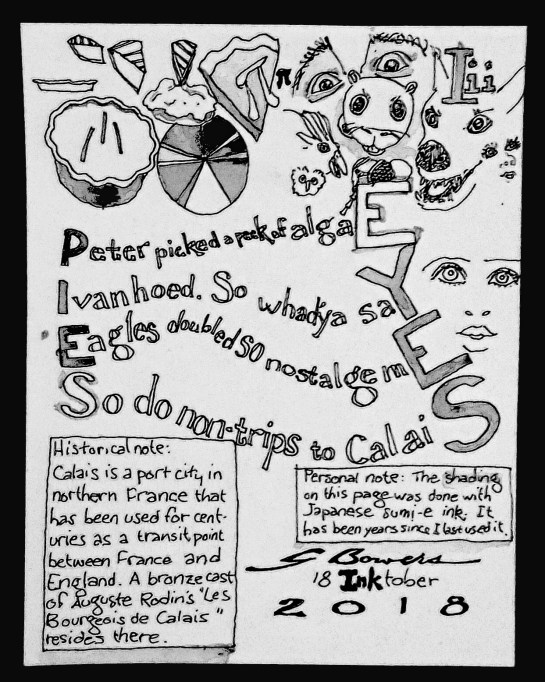 π
Iii
Peter picked a peck of algaE
Ivanhoed. So whad'ya saY
Eagles doubled so nostalge mE
So do non-trips to CalaiS
Historical note:
Calais is a port city in
northern France that
has been used for cent-
uries as a transit point
between France and
England. A bronze cast
of Auguste Rodin's "Les
Bourgeois de Calais"
resides there.
Personal note: The shading
on this page was done with
Japanese sumi-e ink. It
has been years since I last used it.
Bowers
18 Inktober
2018